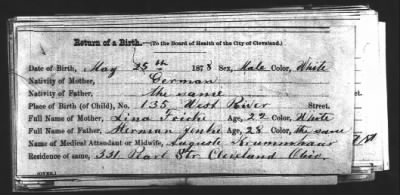 Return of a Birth.—(To the Board of Health of the City of Cleveland.)
Date of Birth, May 25th 1878 Sex, Male Color, White
Nativity of Mother, German
Nativity of Father, the same
Place of Birth (of Child), No. 135, West River Street.
Full Name of Mother, Lina Age, 22 White
Full Name of Father, Herman Age, 28 Color, the same
Name of Medical Attendant or Midwife, Auguste
Residence of same, 331 Pearl Str. Cleveland Ohio.